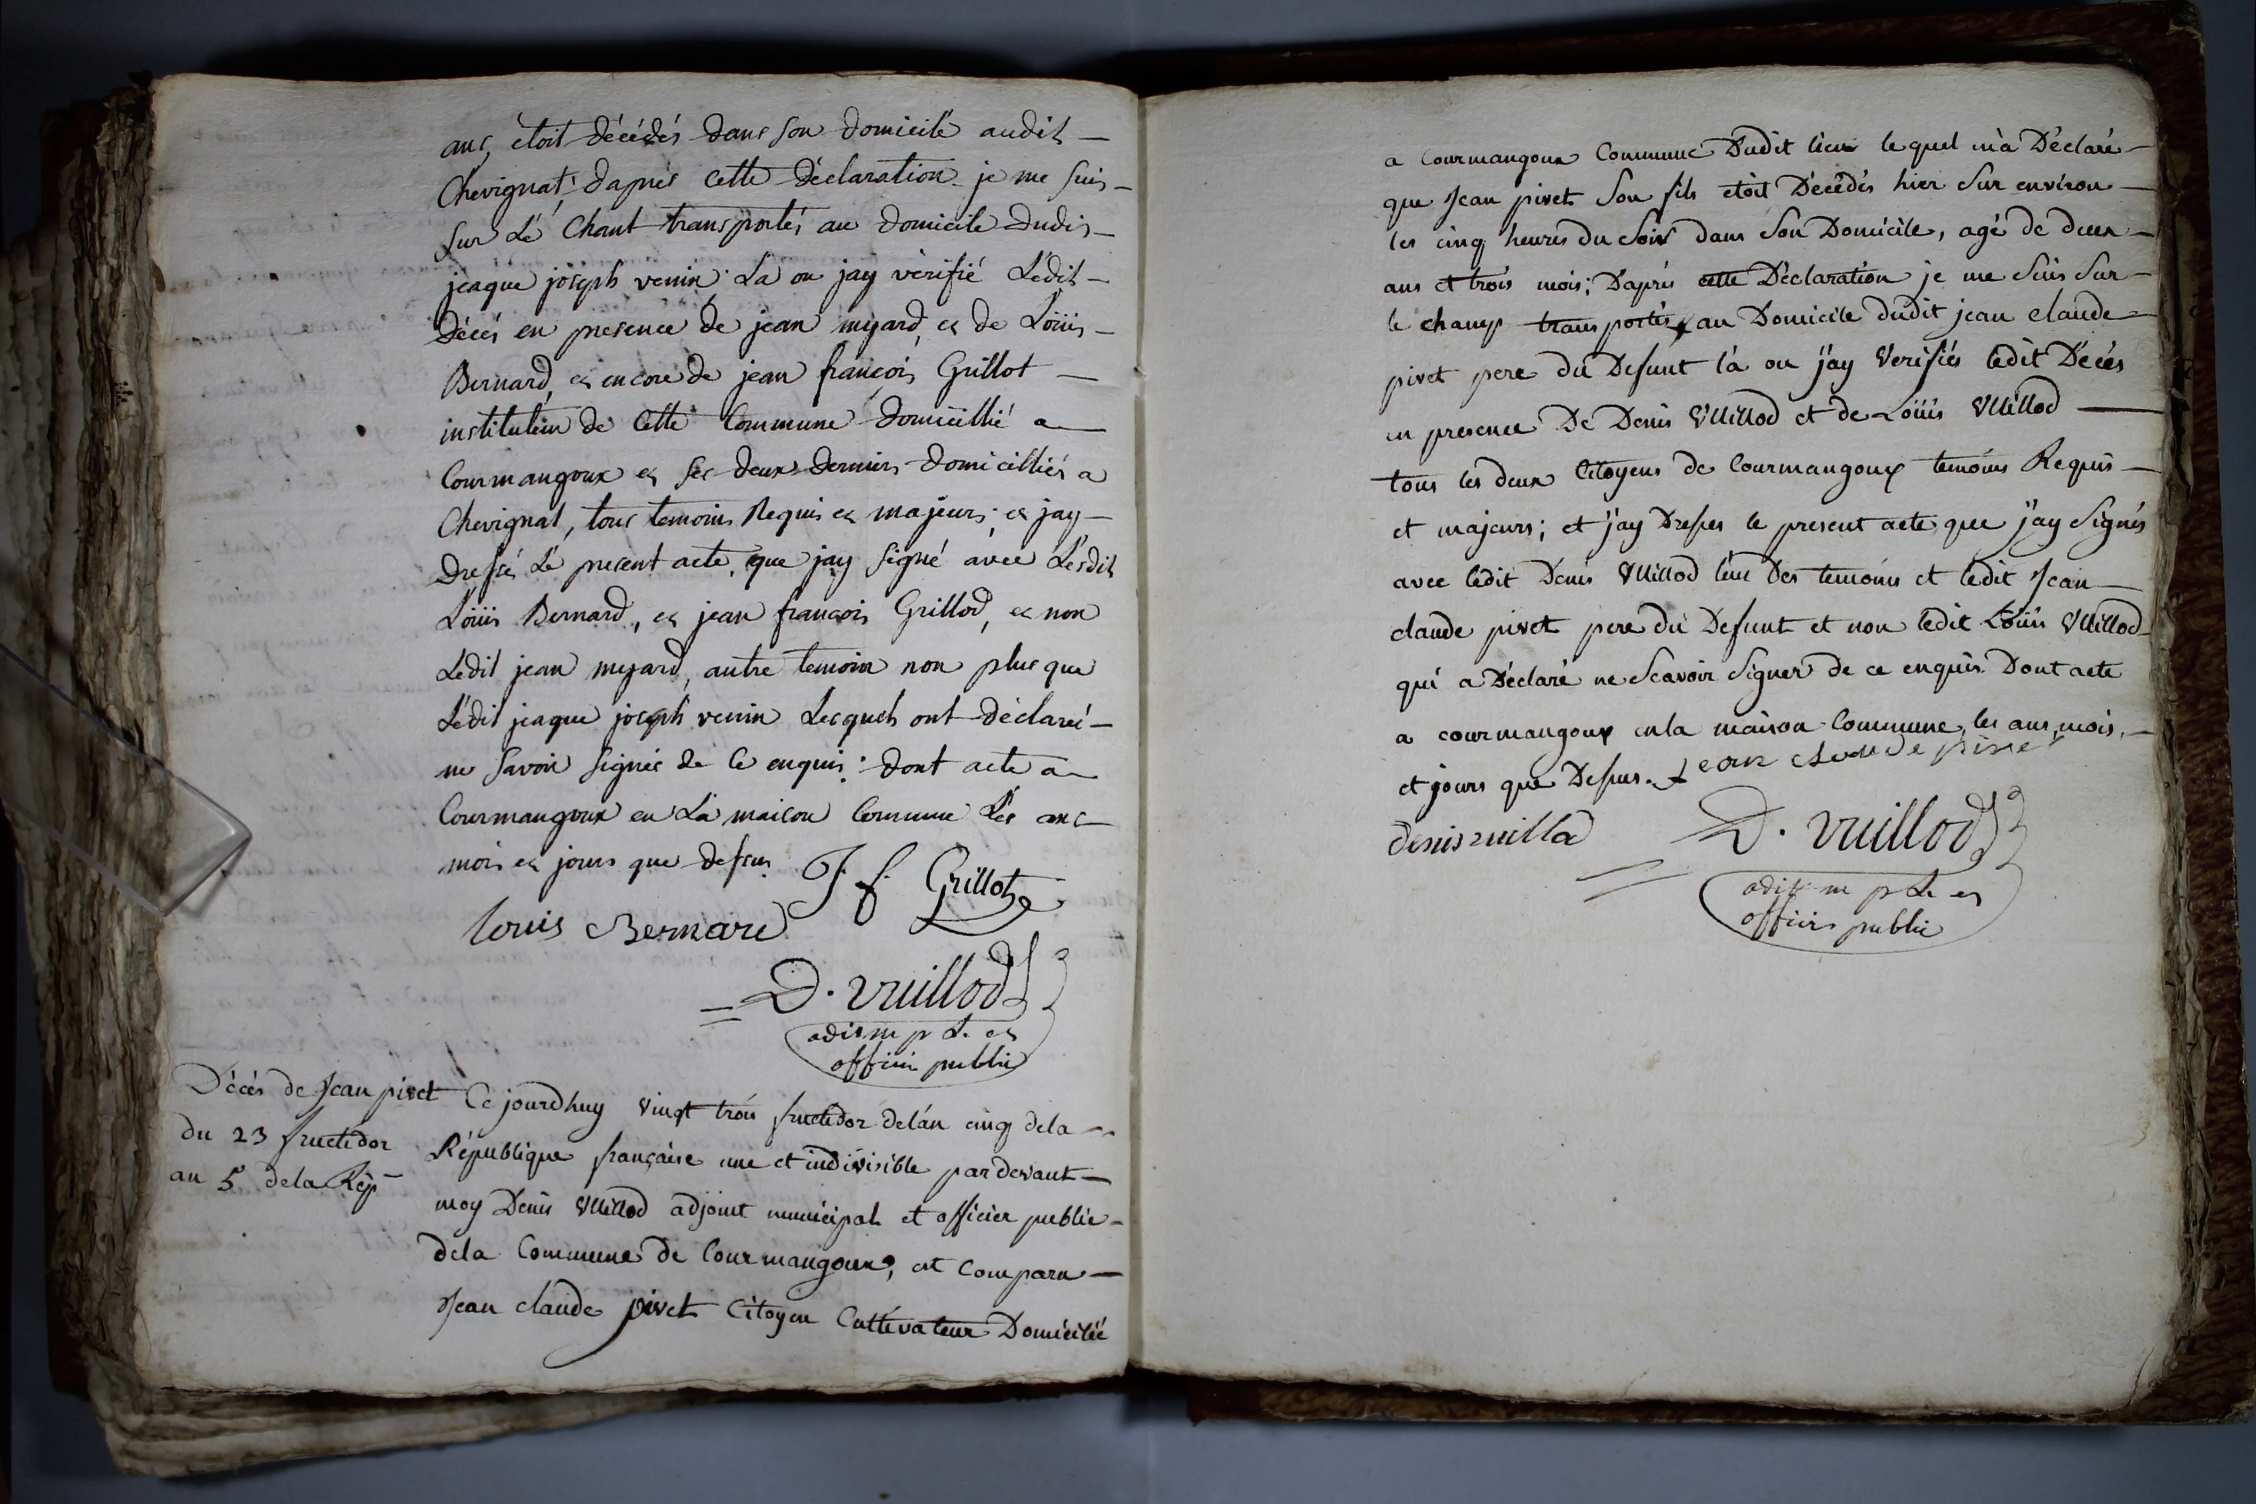 ans, etoit décédés dans son domicile audit
Chevignat; dapres cette déclaration je me suis
sur Lé Chant transportés au domicile dudit
jeaque joseph venin La ou jay vérifié Lédit
décés en presence de jean myard, et de Loüis
Bernard, et encore de jean francois Grillot
instituteur de Cette Commune domicillié a
Courmangoux et les deux derniers domicilliés a
Chevignat, tous temoins Requis et majeurs; et jay
dressé Lé present acte, que jay signé avec Lesdit
Loüis Bernard, et jean francois Grillod, et non
Lédit jean myard, autre temoin non plus que
Lédit jeaque joseph venin Lesquels ont déclareé
ne savoir signée de Ce enquis: dont acte a
Courmangoux en La maison Commune Lés ans
mois et jours que dessus. J. f. Grillot
louis Bernard
D. vuillod
adj m p L. et
officier public
Décés de Jean pivet
du 23 fructidor
an 5 dela Rép
Ce jourdhuy vingt trois fructidor delan cinq dela
République française une et indivisible par devant
moy Denis Vuillod adjoint municipal et officier public
dela Commune de Courmangoux, est Comparu
Jean claude pivet Citoyen Cultivateur Domicilié
a Courmangoux Commune Dudit lieu lequel m'a Déclaré
que Jean pivet Son fils etoit Décédés hier Sur environ
les cinq heures du Soir dans Son Domicile, agé de deux
ans et trois mois; D'après cette Déclaration je me Suis Sur
le champ transportés au Domicile dudit jean claude
pivet pere du Defunt là ou j'ay Verifiés ledit Décés
en presence De Denis Vuillod et de Loüis Vuillod
tous les deux Citoyens de Courmangoux temoins Requis
et majeurs; et j'ay Dresses le present acte que j'ay Signés
avec ledit Denis Vuillod l'un Des temoins et ledit Jean
claude pivet pere du Defunt et non ledit Loüis Vuillod
qui a Déclaré ne Scavoir Signer de ce enquis. Dont acte
a courmangoux en la maison Commune, les ans, mois,
et jours que Dessus. Jean claude pivet
denis vuillod D. vuillod
adj m p L. et
officier public